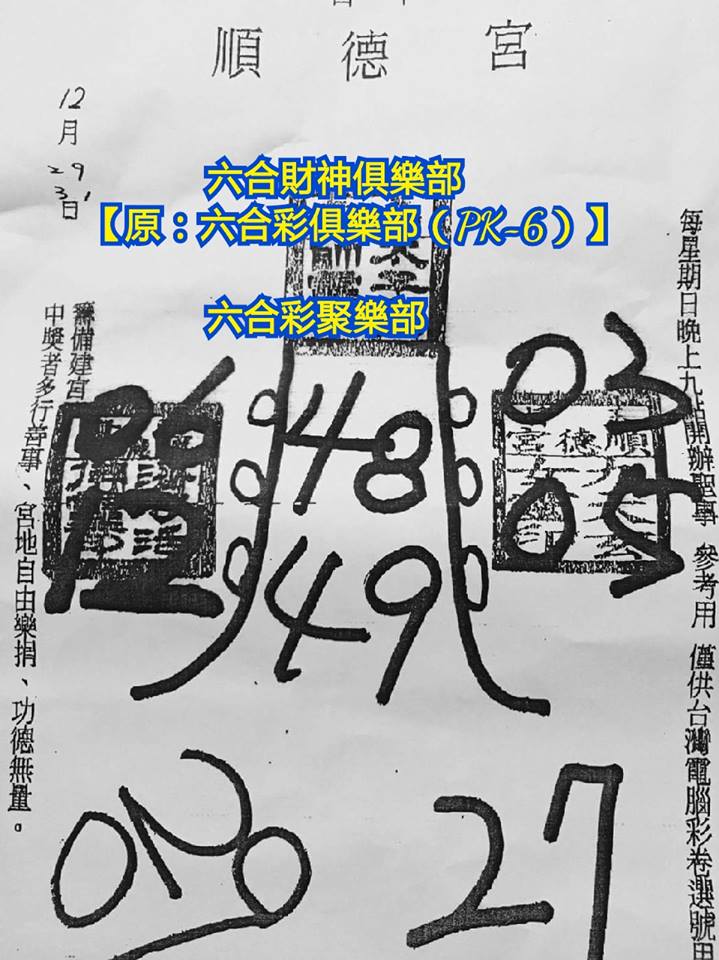 順德宮
12
月
29
31
日
六合財神俱樂部
【原：六合彩俱樂部（PK-6）】
六合彩聚樂部
每星期日晚上九點開辦聖事 參考用 僅供台灣電腦彩卷選號用
順德宮
03
05
48
49
06
12
籌備建宮
中獎者多行善事、宮地自由樂捐、功德無量。
27